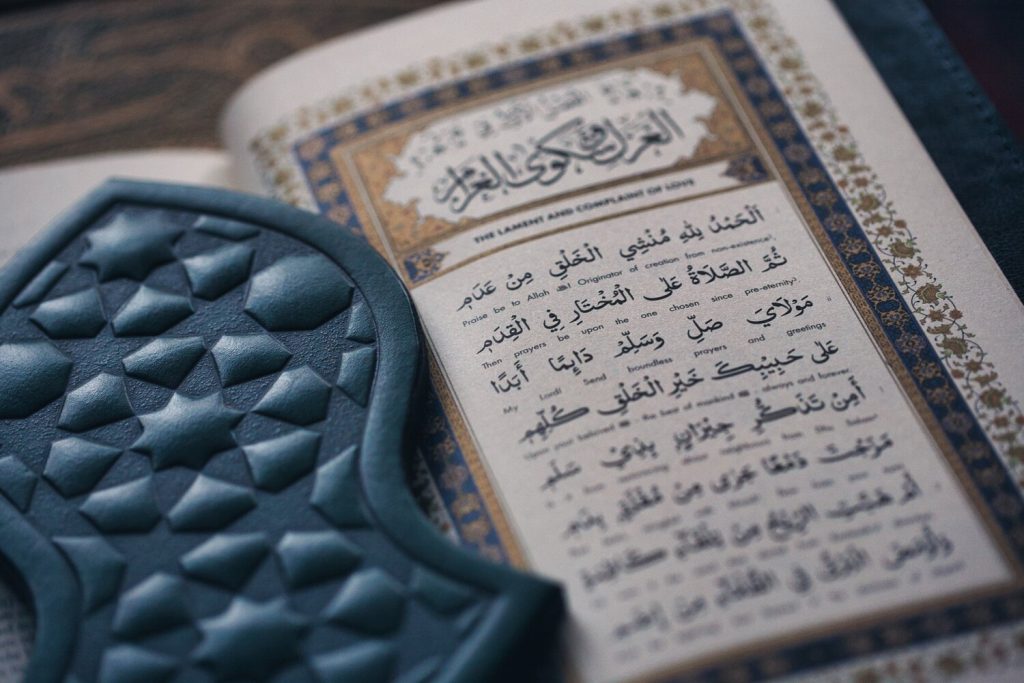 الفصل الأول في
الغزل وشكوى الغرام
THE LAMENT AND COMPLAINT OF LOVE
اَلْحَمْدُ لِلّٰهِ مُنْشِي الْخَلْقِ مِنْ عَدَمِ
Praise be to Allah ﷻ Originator of creation from non-existence
ثُمَّ الصَّلَاةُ عَلَى الْمُخْتَارِ فِي الْقِدَمِ
Then prayers be upon the one chosen since pre-eternity
مَوْلَايَ صَلِّ وَسَلِّمْ دَائِمًا أَبَدًا
My Lord! Send boundless prayers and greetings
عَلَى حَبِيبِكَ خَيْرِ الْخَلْقِ كُلِّهِمِ
Upon your beloved the best of mankind always and forever
أَمِنْ تَذَكُّرِ جِيْرَانٍ بِذِيْ سَلَمِ
مَزَجْتَ دَمْعًا جَرَى مِنْ مُقْلَةٍ بِدَمِ
أَمْ هَبَّتِ الرِّيْحُ مِنْ تِلْقَاءِ كَاظِمَةٍ
وَأَوْمَضَ الْبَرْقُ فِي الظَّلْمَاءِ مِنْ إِضَمِ